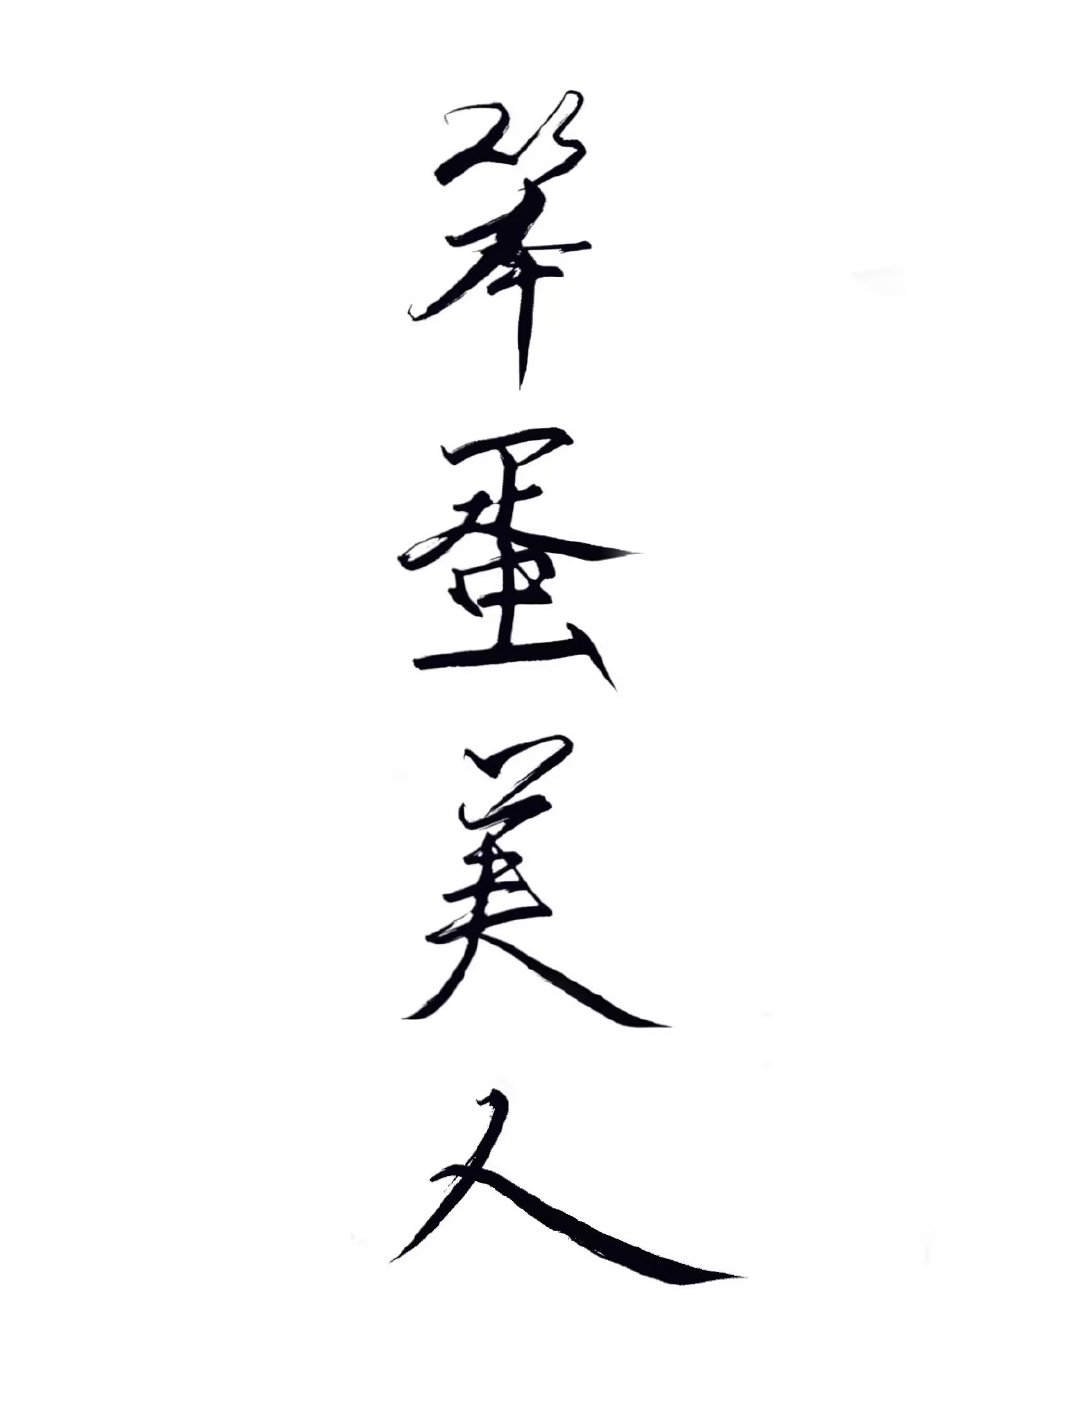 笨蛋美人